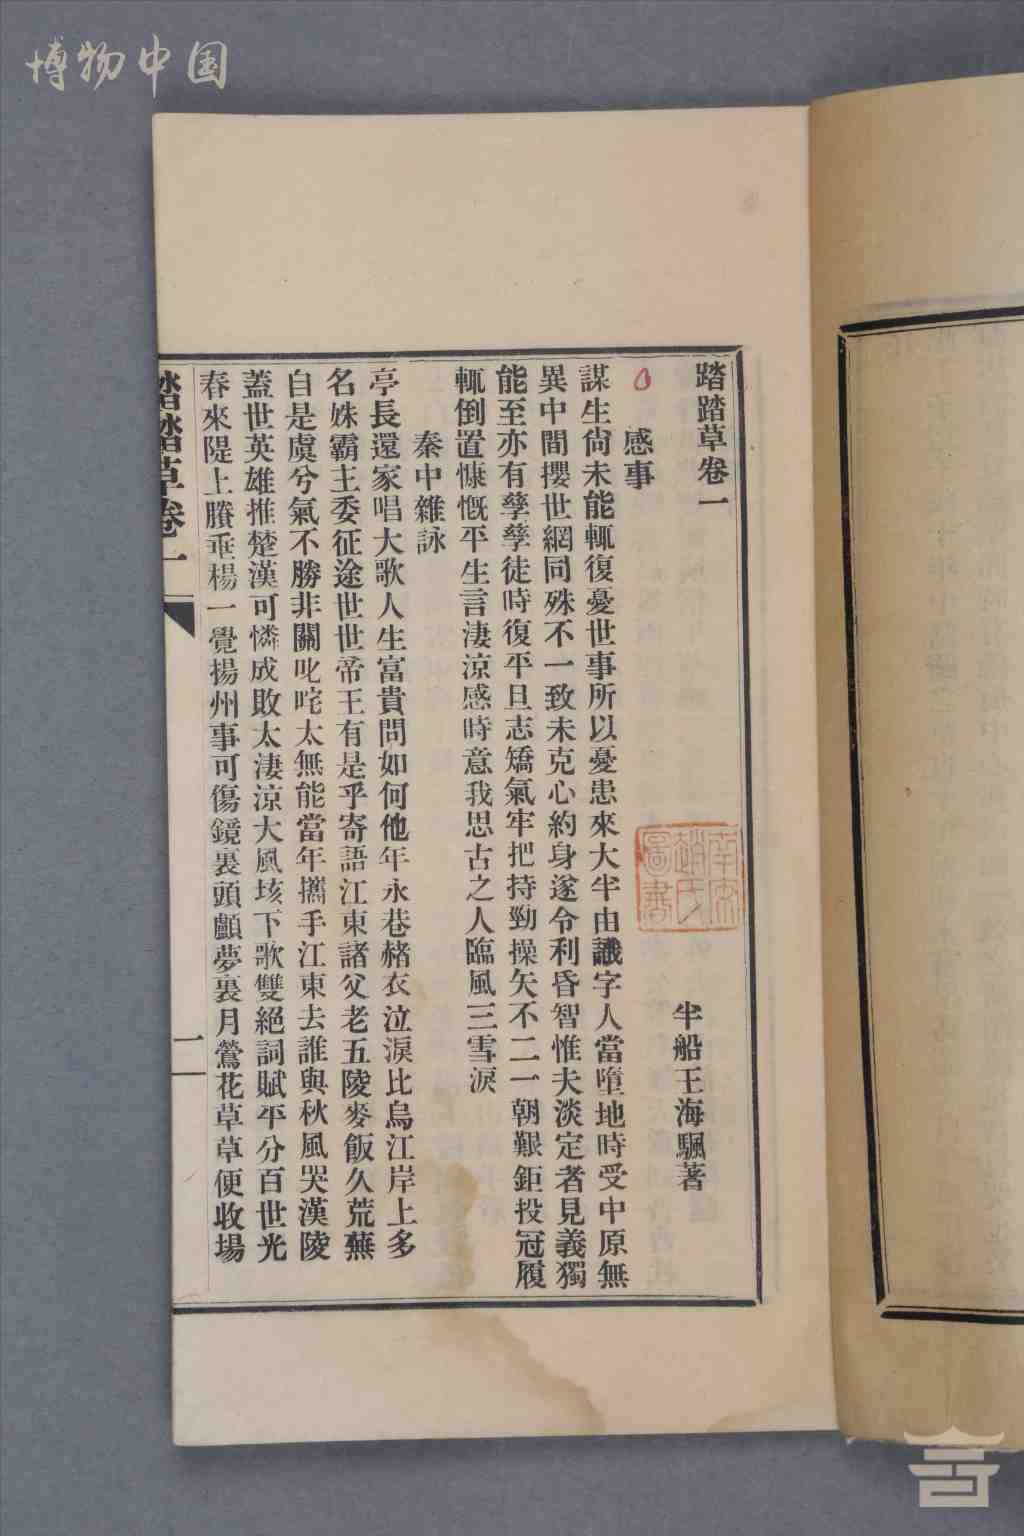 博物中国
踏踏草卷一
半船王海颿著
感事
謀生尙未能輒復憂世事所以憂患來大半由識字人當墮地時受中原無
異中間攖世網同殊不一致未克心約身遂令利昏智惟夫淡定者見義獨
能至亦有孳孳徒時復平旦志矯氣牢把持勁操矢不二一朝艱鉅投冠履
輒倒置慷慨平生言淒涼感時意我思古之人臨風三雪淚
秦中雜詠
亭長還家唱大歌人生富貴問如何他年永巷赭衣泣淚比烏江岸上多
名姝霸主委征途世世帝王有是乎寄語江東諸父老五陵麥飯久荒蕪
自是虞兮氣不勝非關叱咤太無能當年攜手江東去誰與秋風哭漢陵
蓋世英雄推楚漢可憐成敗太淒涼大風垓下歌雙絕詞賦平分百世光
春來隄上賸垂楊一覺揚州事可傷鏡裏頭顱夢裏月鶯花草草便收場
踏踏草卷一
一
南宋
趙氏
圖書